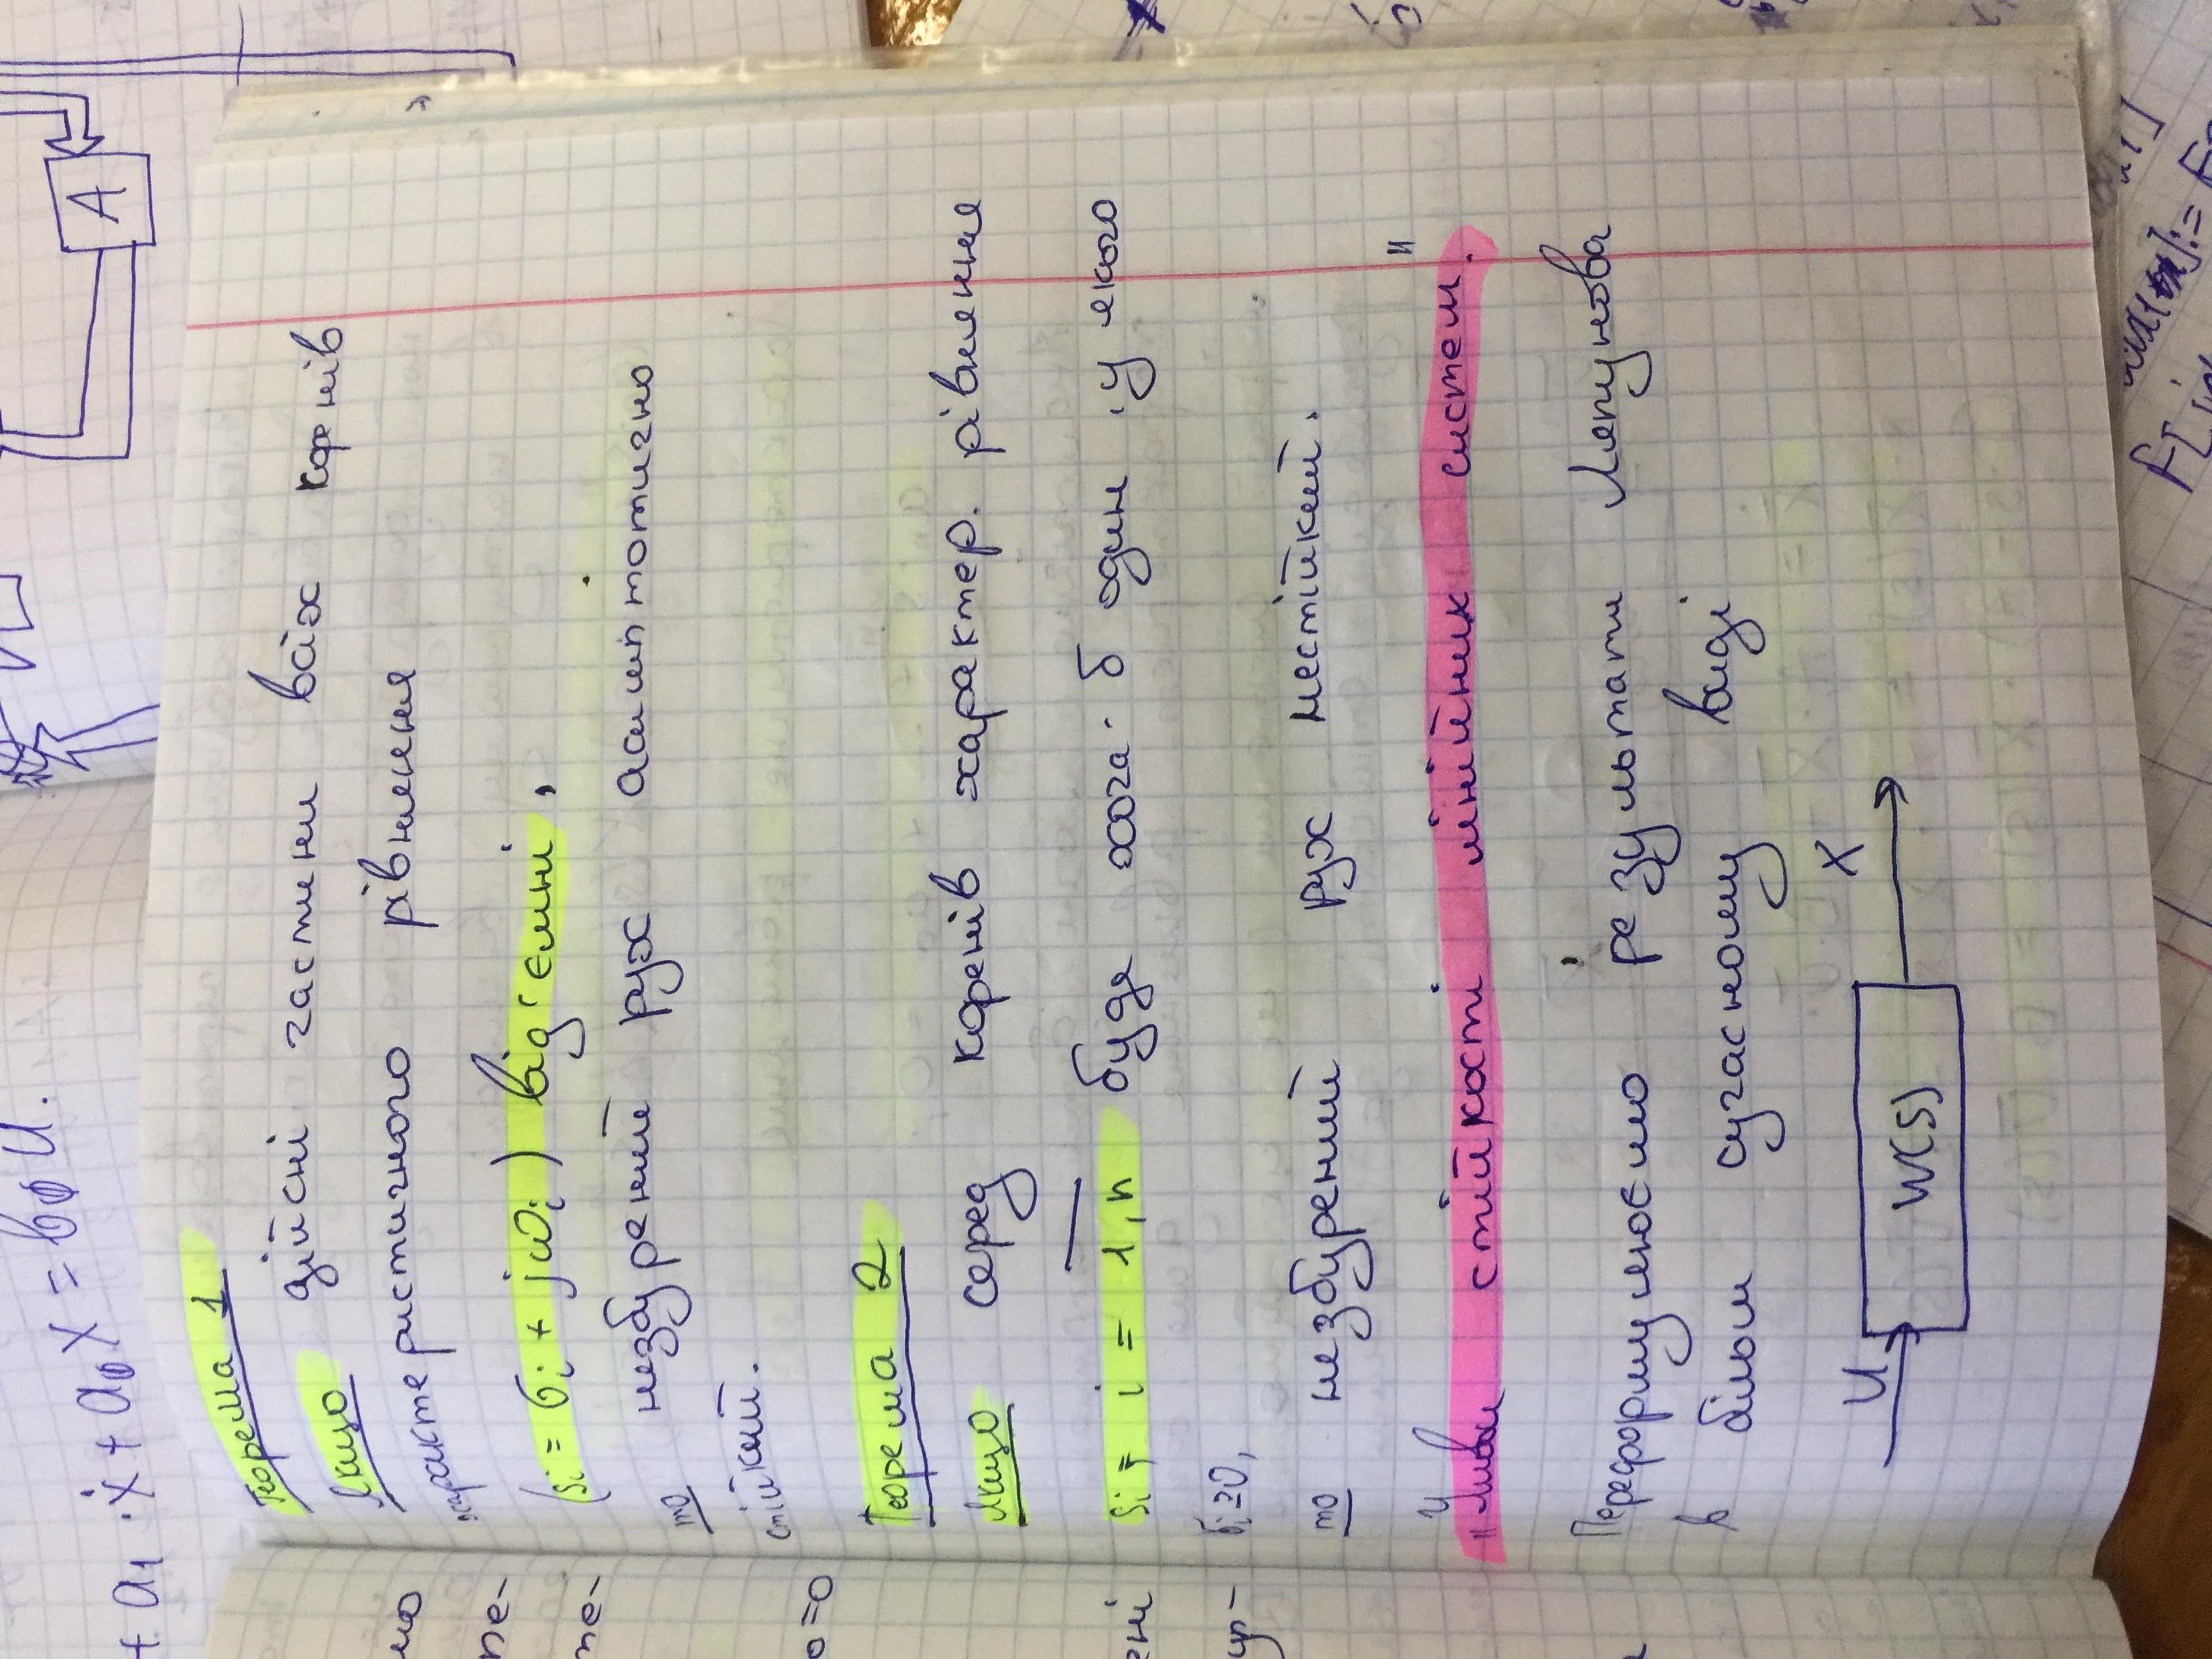 + a₁ · ẋ + a₀ x = b₀ U.
A
Теорема 1
Якщо дійсні частини всіх коренів
характеристичного рівняння
(sᵢ = σᵢ + jωᵢ) від'ємні,
то незбурений рух асимптотично
стійкий.
Теорема 2
Якщо серед коренів характер. рівняння
sᵢ, i = 1, n буде хоча-б один, у якого
σᵢ≥0,
то незбурений рух нестійкий.
"Умови стійкості лінійних систем."
Переформулюємо результати Ляпунова
в більш сучасному виді
U W(S) X
мо
пе-
пе-
0=0
ені
ур-